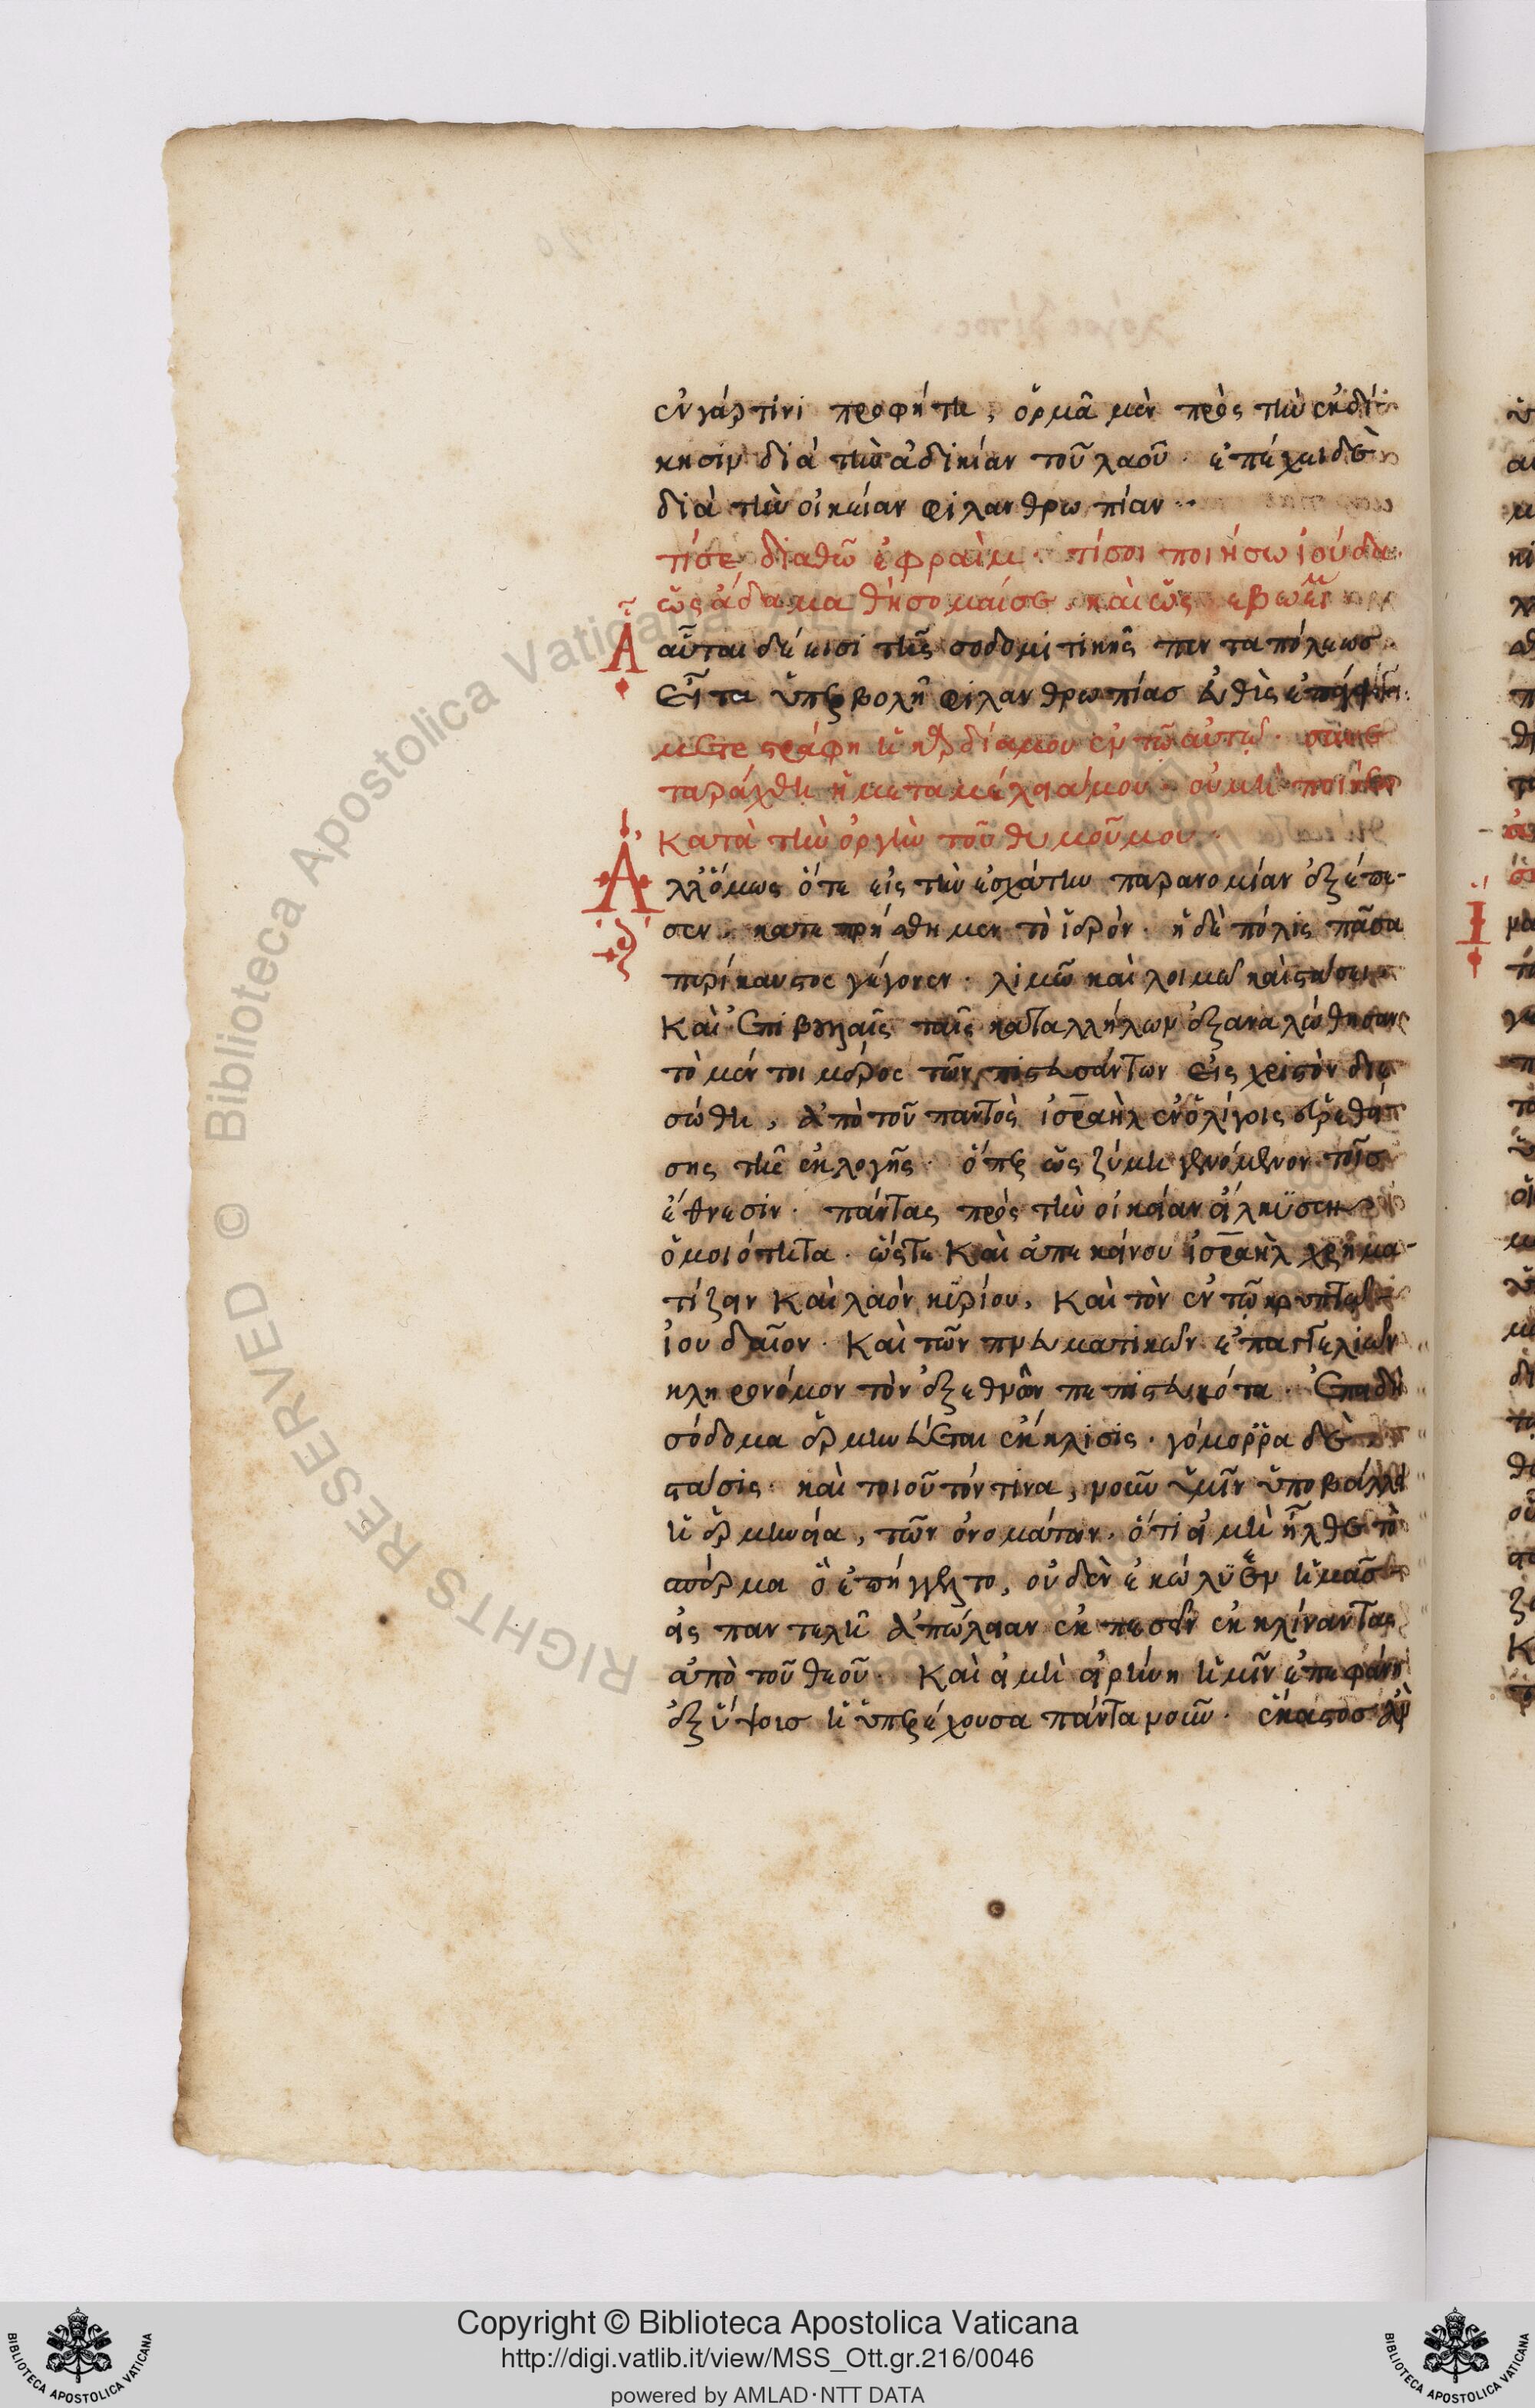 ἐν γάρ τινι προφήτη, ὁρμᾶ μὲν πρὸς τὴν ἐκδί
κησιν διὰ τὴν ἀδικίαν τοῦ λαοῦ · ἐπέχει δὲ
διὰ τὴν οἰκείαν φιλανθρωπίαν ··
τί σε διαθῶ ἐφραΐμ · τί σοι ποιήσω ἰούδα ·
ὡς ἀδαμα θήσομαί σε, καὶ ὡς σεβωεῖμ
Α αὗται δέ εἰσι τῆς σοδομιτικῆς πενταπόλεως ·
Εἶτα ὑπερβολῆ φιλανθρωπίας αὖθις
μετεστράφη ἡ καρδία μου ἐν τῶ αὐτῶ ·
ταράχθη ἡ μεταμέλεια μου · οὐ μὴ ποιήσω
κατὰ τὴν ὀργὴν τοῦ θυμοῦ μου ·
Αλλ' ὅμως ὅτε εἰς τὴν ἐσχάτην παρανομίαν ἐξέπε-
σεν, κατεπρήσθη μεν τὸ ἱερόν · ἡ δὲ πόλις πᾶσα
περίκαυστος γέγονεν · λιμῶ καὶ λοιμῶ καὶ στάσει
Καὶ ἐπιβουλαῖς ταῖς κατ' ἀλλήλων ἐξαναλώθησαν
τὸ μέν τοι μέρος τῶν πιστευσάντων εἰς χριστὸν διε
σώθη, ἀπὸ τοῦ παντὸς ἰσραὴλ ἐν ὀλίγοις εὑρεθεί
σης τῆς ἐκλογῆς · ὅπερ ὡς ζύμη γενόμενον τοῖς
ἔθνεσιν · πάντας πρὸς τὴν οἰκείαν εἵλκυσεν
ὁμοιότητα · ὥστε Καὶ ἀπ' ἐκείνου ἰσραὴλ χρημα-
τίζειν Καὶ λαὸν κυρίου, Καὶ τὸν ἐν τῶ κρυπτῶ
ἰουδαῖον · Καὶ τῶν πνευματικῶν ἐπαγγελιῶν
κληρονόμον τὸν ἐξ ἐθνῶν πεπιστευκότα · Ἐπειδὴ
σόδομα ἑρμηνεύεται ἔκκλισις · γόμορρα δὲ
στάσις · καὶ τοιοῦτόν τινα, νοῦν ὑμῖν ὑποβάλλει
ἡ ἑρμηνεία, τῶν ὀνομάτων · ὅτι εἰ μὴ ἦλθε τὸ
σπέρμα ὃ ἐπήγγελτο, οὐδὲν ἐκώλυεν ἡμᾶς
εἰς παντελῆ ἀπώλειαν ἐκπεσεῖν ἐκκλίναντας
ἀπὸ τοῦ θεοῦ · Καὶ εἰ μὴ εἰρήνη ἡμῖν ἐπεφάνη
ἐξ ὕψους ἡ ὑπερέχουσα πάντα νοῦν · ἕκαστος
Copyright © Biblioteca Apostolica Vaticana
http://digi.vatlib.it/view/MSS_Ott.gr.216/0046
powered by AMLAD·NTT DATA